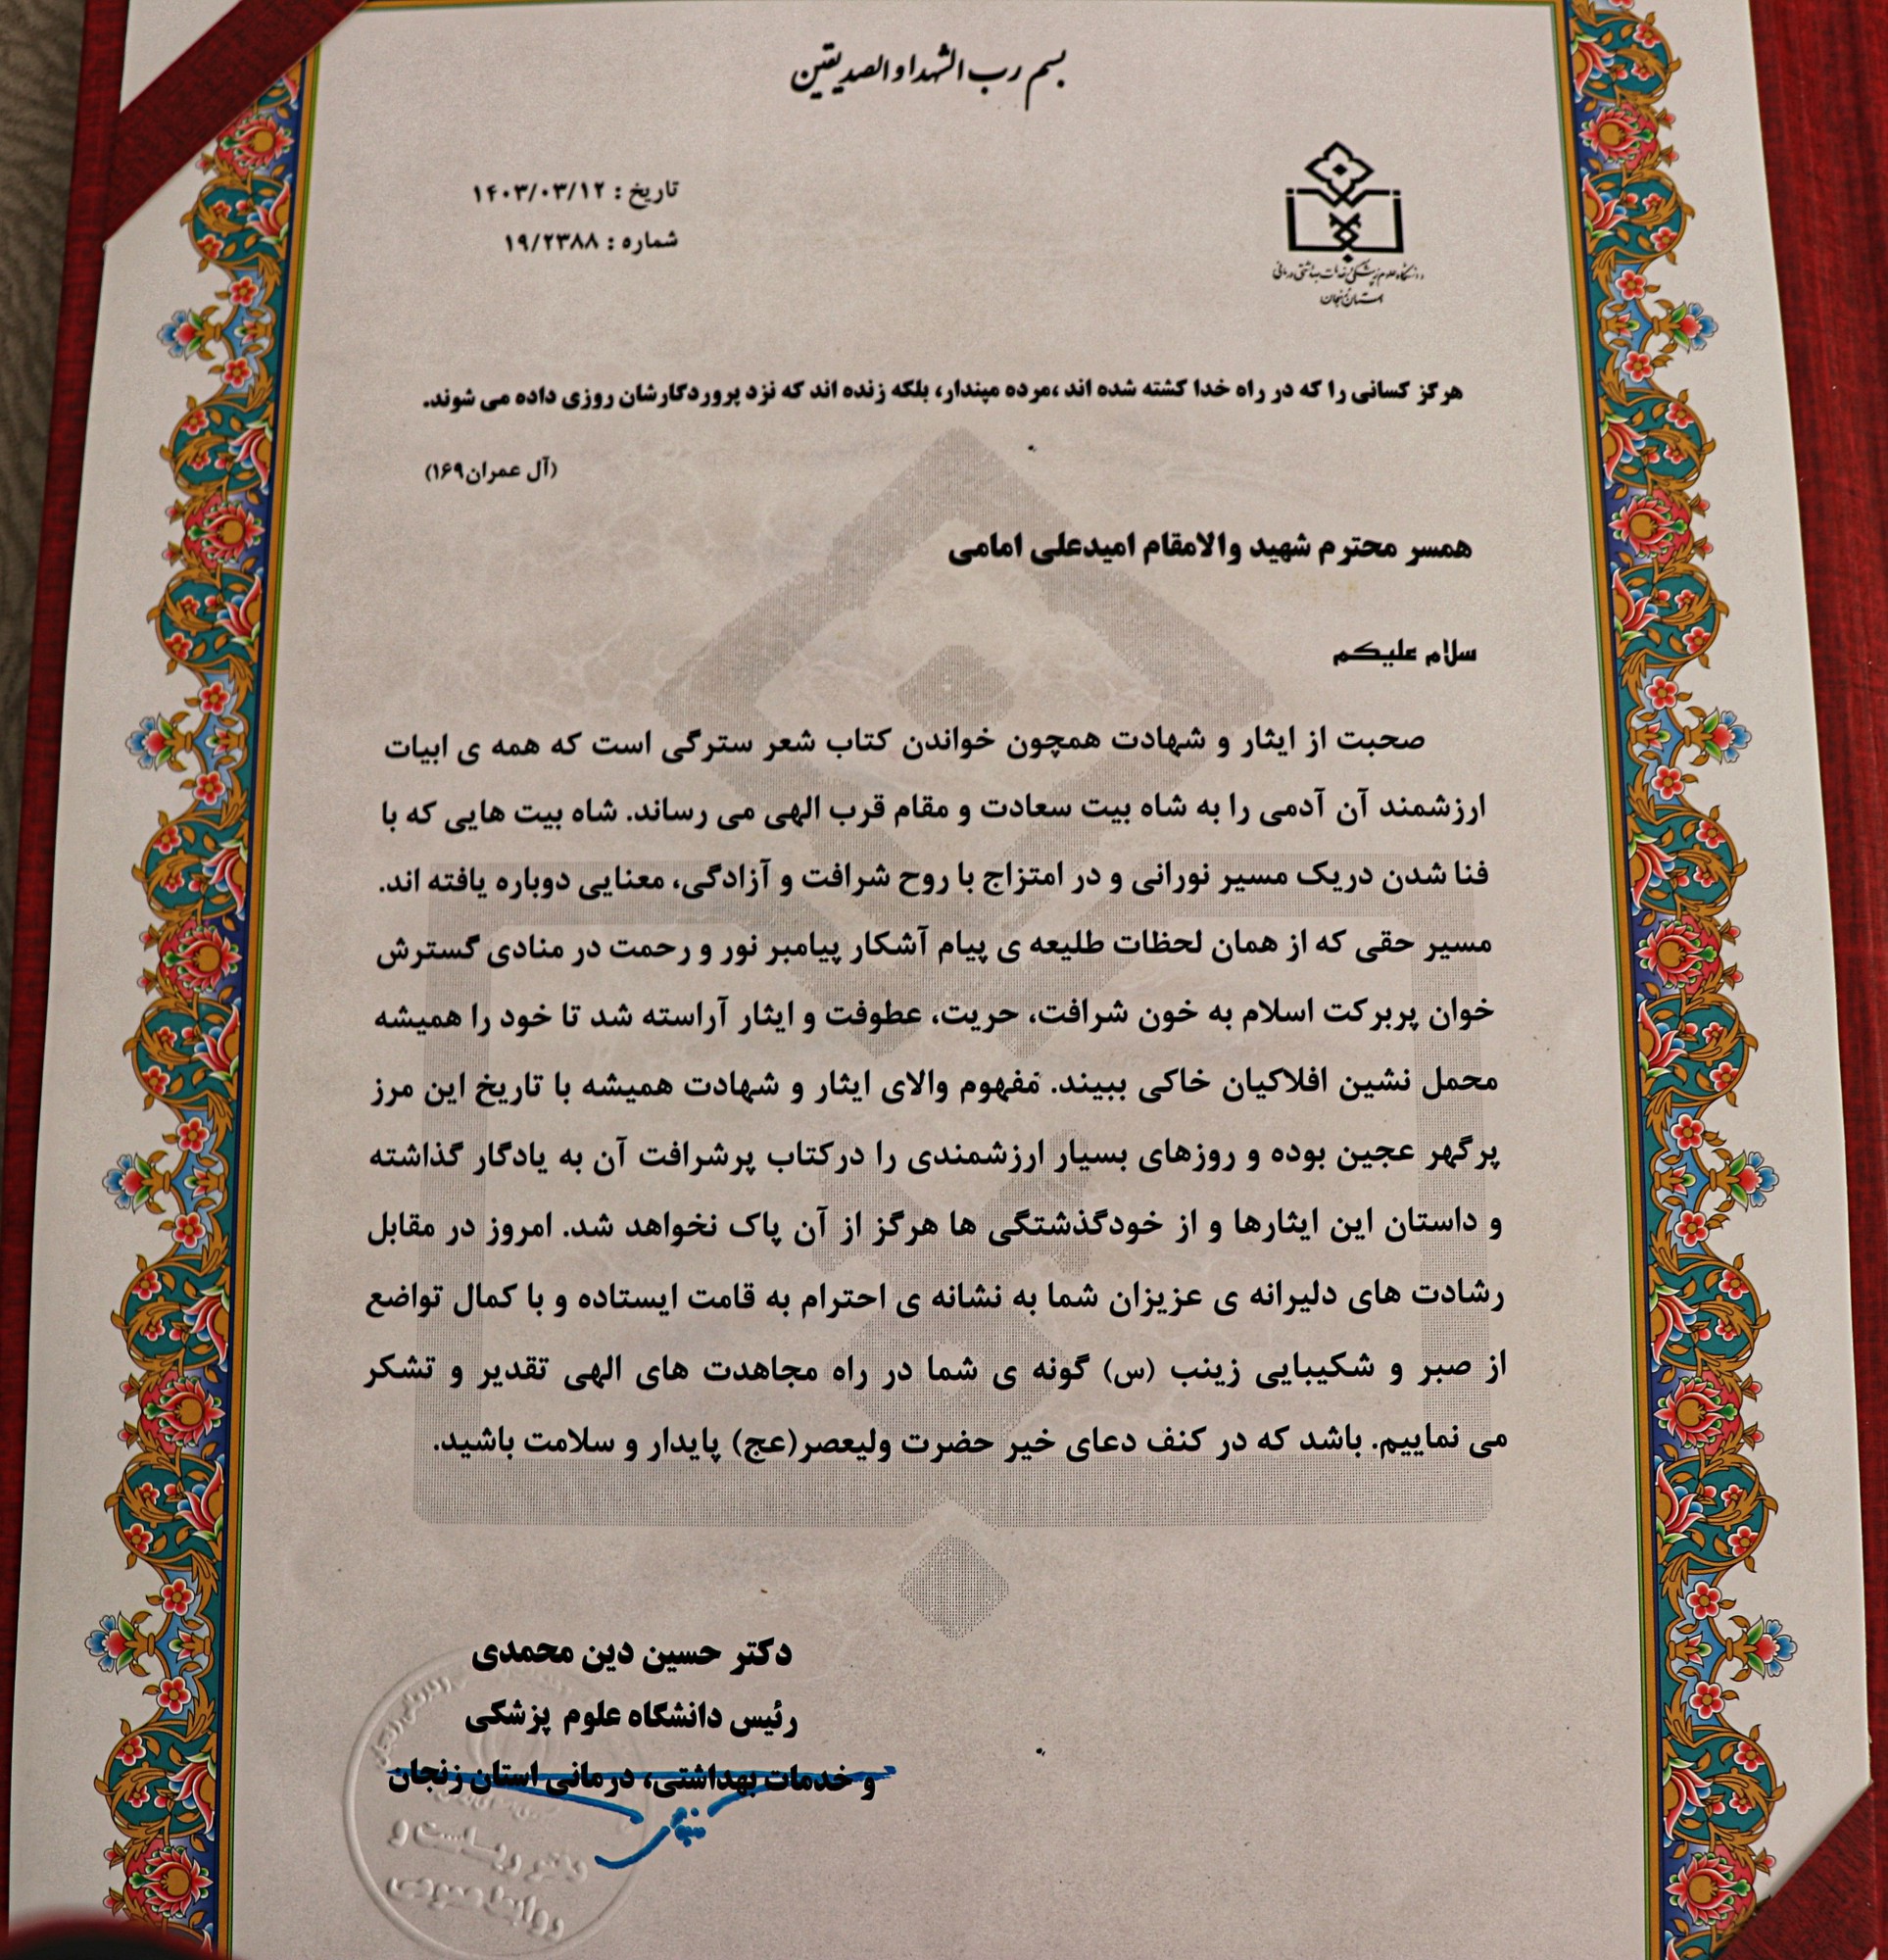 بسم رب الشهدا و الصدیقین
تاریخ : ۱۴۰۳/۰۳/۱۲
شماره : ۱۹/۲۳۸۸
دانشگاه علوم پزشکی و خدمات بهداشتی درمانی
استان زنجان
هرگز کسانی را که در راه خدا کشته شده اند ،مرده مپندار، بلکه زنده اند که نزد پروردگارشان روزی داده می شوند.
(آل عمران۱۶۹)
همسر محترم شهید والامقام امیدعلی امامی
سلام علیکم
صحبت از ایثار و شهادت همچون خواندن کتاب شعر سترگی است که همه ی ابیات
ارزشمند آن آدمی را به شاه بیت سعادت و مقام قرب الهی می رساند. شاه بیت هایی که با
فنا شدن دریک مسیر نورانی و در امتزاج با روح شرافت و آزادگی، معنایی دوباره یافته اند.
مسیر حقی که از همان لحظات طلیعه ی پیام آشکار پیامبر نور و رحمت در منادی گسترش
خوان پربرکت اسلام به خون شرافت، حریت، عطوفت و ایثار آراسته شد تا خود را همیشه
محمل نشین افلاکیان خاکی ببیند. مفهوم والای ایثار و شهادت همیشه با تاریخ این مرز
پرگهر عجین بوده و روزهای بسیار ارزشمندی را درکتاب پرشرافت آن به یادگار گذاشته
و داستان این ایثارها و از خودگذشتگی ها هرگز از آن پاک نخواهد شد. امروز در مقابل
رشادت های دلیرانه ی عزیزان شما به نشانه ی احترام به قامت ایستاده و با کمال تواضع
از صبر و شکیبایی زینب (س) گونه ی شما در راه مجاهدت های الهی تقدیر و تشکر
می نماییم. باشد که در کنف دعای خیر حضرت ولیعصر(عج) پایدار و سلامت باشید.
دکتر حسین دین محمدی
رئیس دانشگاه علوم پزشکی
و خدمات بهداشتی، درمانی استان زنجان
دفتر ریاست و
روابط عمومی